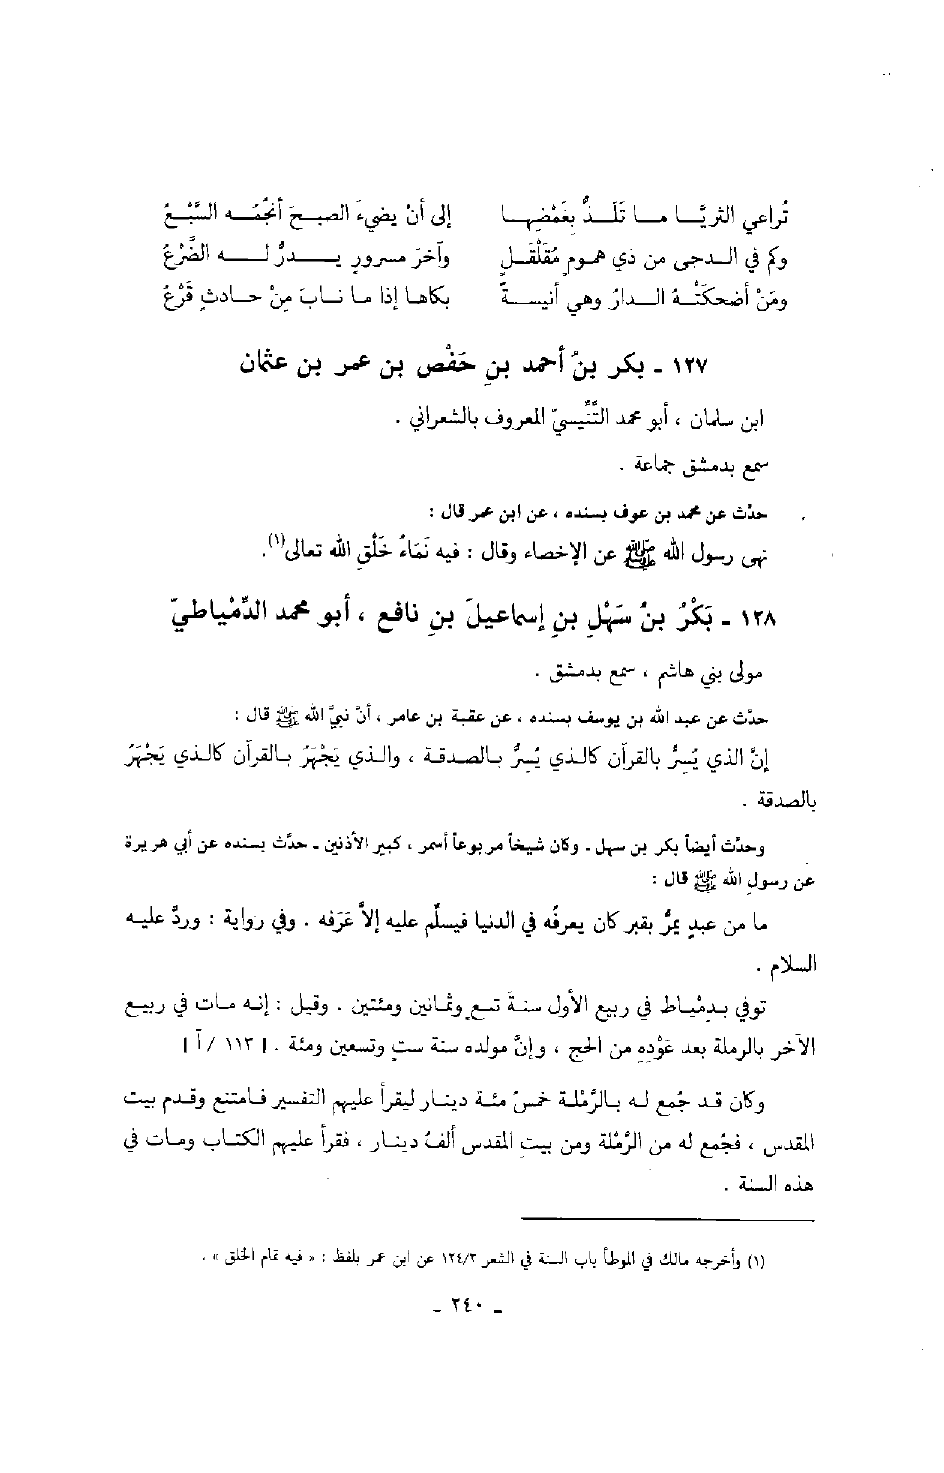 تُراعي الثريَّا ما تَلَذُّ بغَمْضِها إلى أنْ يضيءَ الصبحَ أنجُمُه السَّبْعُ
وكم في الدجى من ذي هموم مُقَلْقَلٍ وآخرَ مسرورٍ يدرُّ له الضَّرْعُ
ومَنْ أضحكَتْهُ الدارُ وهي أنيسةٌ بكاها إذا ما نابَ مِنْ حادثٍ قَرْعُ
١٢٧ ـ بكر بنُ أحمد بنِ حَفْص بن عمر بن عثمان
ابن سلمان ، أبو محمد التِّنِّيسيّ المعروف بالشعراني .
سمع بدمشق جماعة .
حدَّث عن محمد بن عوف بسنده ، عن ابن عمر قال :
نهى رسول الله ﷺ عن الإخصاء وقال : فيه نَمَاءُ خَلْقِ الله تعالى(١).
١٢٨ ـ بَكْرُ بنُ سَهْلِ بنِ إسماعيلَ بنِ نافع ، أبو محمد الدِّمْياطيّ
مولى بني هاشم ، سمع بدمشق .
حدَّث عن عبد الله بن يوسف بسنده ، عن عقبة بن عامر ، أنَّ نبيَّ الله ﷺ قال :
إنَّ الذي يُسِرُّ بالقرآن كالذي يُسِرُّ بالصدقة ، والذي يَجْهَرُ بالقرآن كالذي يَجْهَرُ
بالصدقة .
وحدَّث أيضاً بكر بن سهل ـ وكان شيخاً مربوعاً أسمر ، كبير الأذنين ـ حدَّث بسنده عن أبي هريرة
عن رسول الله ﷺ قال :
ما من عبدٍ يمرُّ بقبر كان يعرفُه في الدنيا فيسلِّم عليه إلاَّ عَرَفه . وفي رواية : وردَّ عليه
السلام .
توفي بدمْياط في ربيع الأول سنةَ تسعٍ وثمانين ومئتين . وقيل : إنه مات في ربيع
الآخر بالرملة بعد عَوْدِه من الحج ، وإنَّ مولده سنة ستٍ وتسعين ومئة . [ ١١٣ /أ ]
وكان قد جُمع له بالرَّمْلة خمسُ مئة دينار ليقرأ عليهم التفسير فامتنع وقدم بيت
المقدس ، فجُمع له من الرَّمْلة ومن بيت المقدس ألفُ دينار ، فقرأ عليهم الكتاب ومات في
هذه السنة .
(١) وأخرجه مالك في الموطأ باب السنة في الشعر ١٢٤/٣ عن ابن عمر بلفظ : « فيه تمام الخلق » .
ـ ٢٤٠ ـ